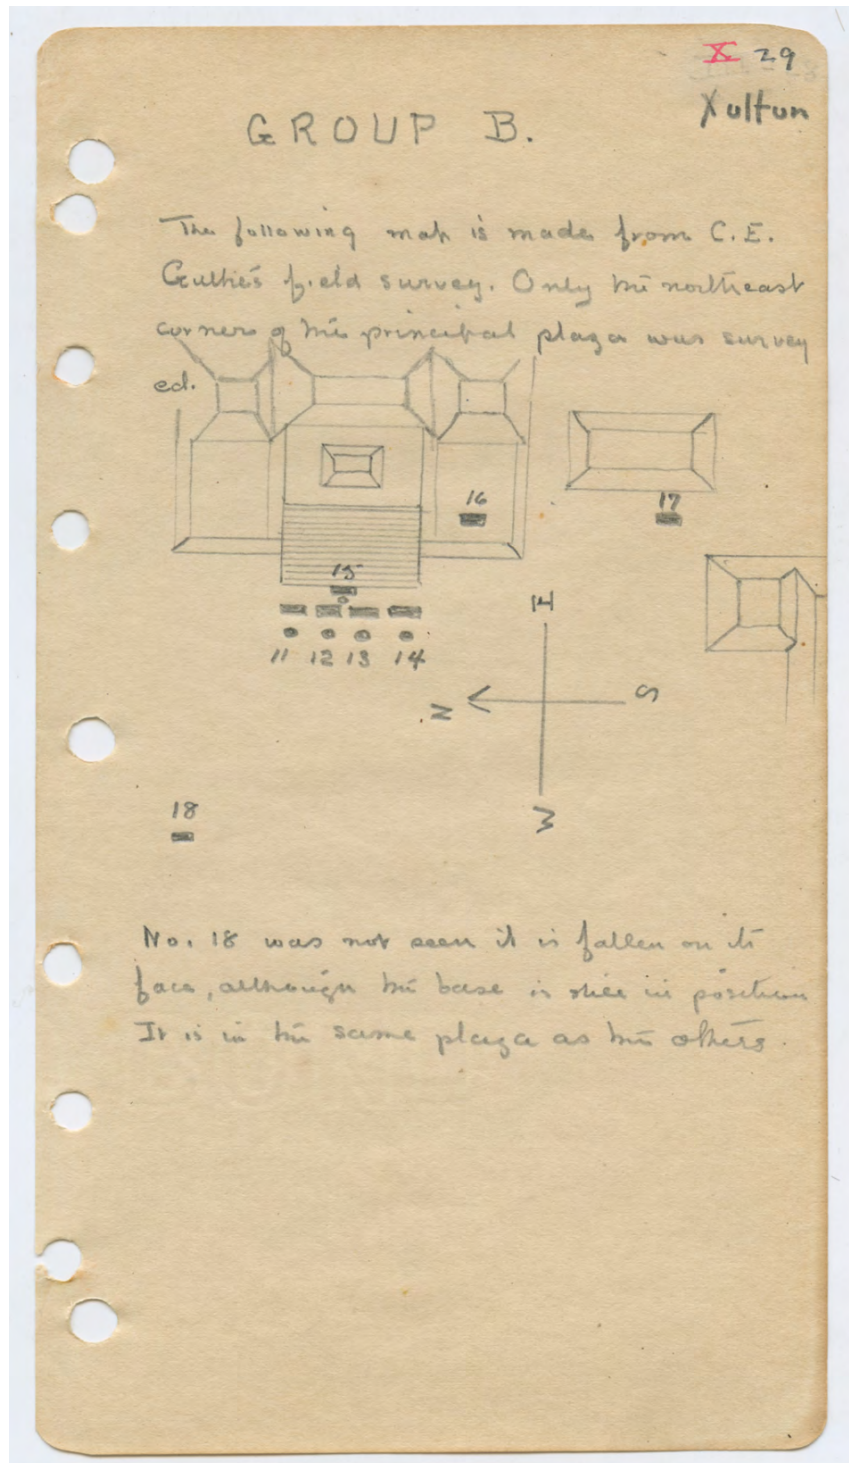 X 29
Xultun
GROUP B.
The following map is made from C.E.
Guthe's field survey. Only the northeast
corner of the principal plaza was survey
ed.
16
17
15
11 12 13 14
E
N
S
W
18
No. 18 was not seen it is fallen on its
face, although the base is still in position
It is in the same plaza as the others.